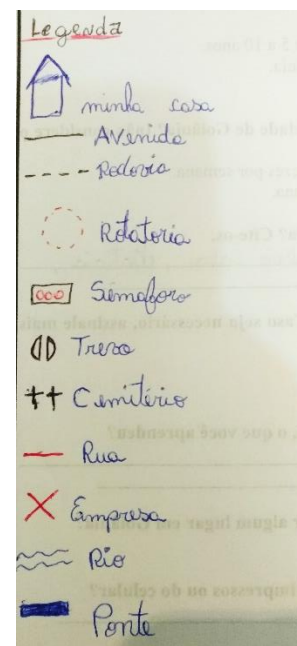 Legenda
minha casa
Avenida
Rodovia
Rotatoria
Sémaforo
Trevo
Cemitério
Rua
Empresa
Rio
Ponte